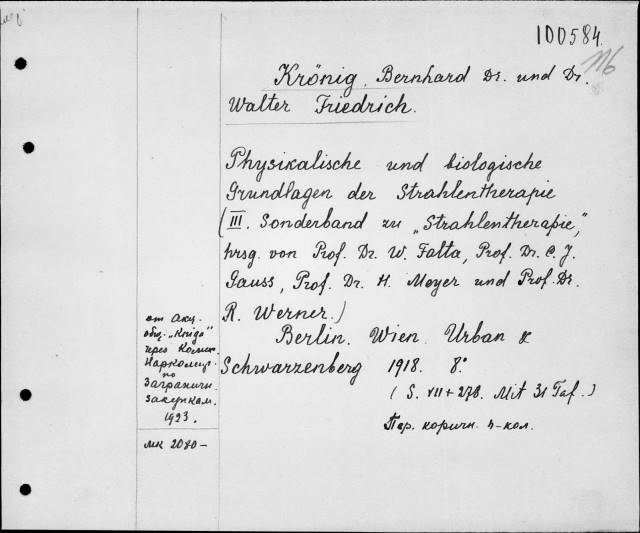 100584
116
Krönig, Bernhard Dr. und Dr.
Walter Friedrich.
Physikalische und biologische
Grundlagen der Strahlentherapie
(III. Sonderband zu „Strahlentherapie“,
hrsg. von Prof. Dr. W. Falta, Prof. Dr. C. J.
Gauss, Prof. Dr. H. Meyer und Prof. Dr.
R. Werner.)
Berlin. Wien. Urban &
Schwarzenberg 1918. 8°.
(S. VII + 278. Mit 31 Taf.)
Пер. коричн. п-кол.
от Акц.
общ. „Kniga“
через Комис.
Наркомпр.
по
Заграничн.
закупкам.
1923.
мк 2080-